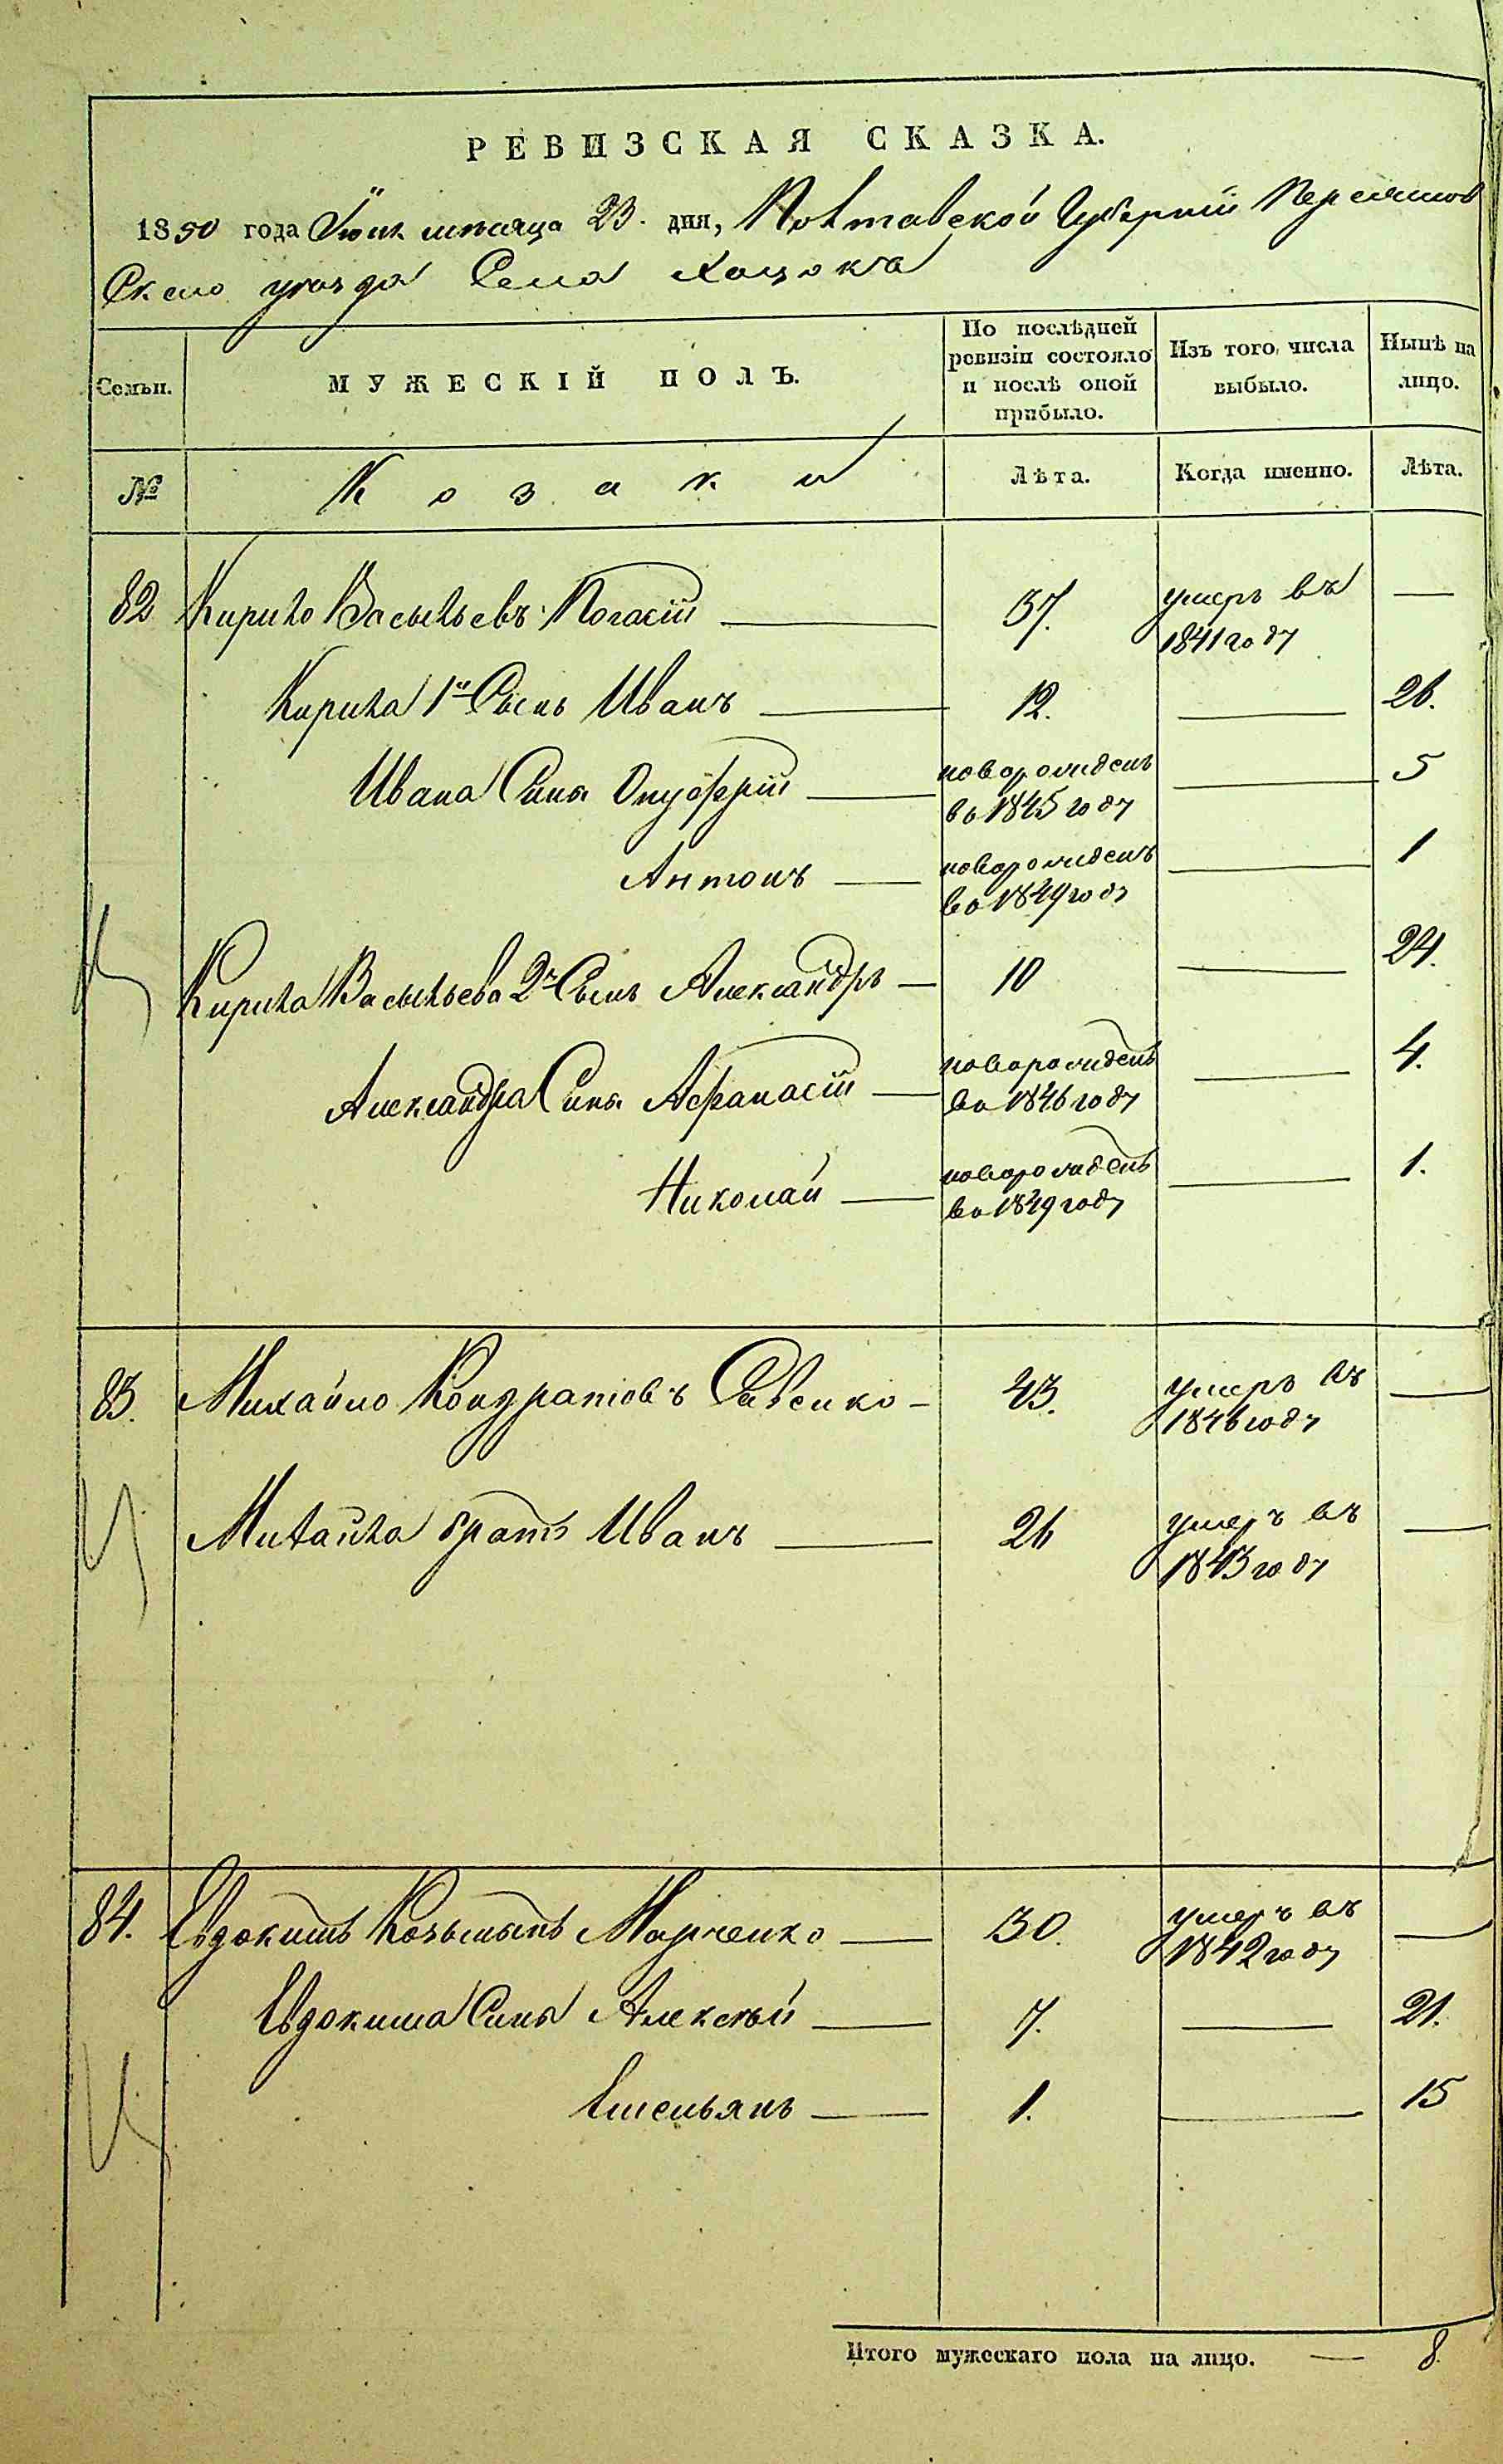 РЕВИЗСКАЯ СКАЗКА.
1850 года Іюня мѣсяца 23. дня, Полтавской Губерніи Переяслов
Скаго уѣзда Села Хоцокъ
Семьи. МУЖЕСКІЙ ПОЛЪ. По послѣдней ревизіи состояло и послѣ оной прибыло. Изъ того числа выбыло. Нынѣ на лицо.
№ Козаки Лѣта. Когда именно. Лѣта.
82 Кирило Васильевъ 37. умеръ въ —
1841 году
Кирила 1й Сынъ Иванъ 12. — 26.
Ивана Сынъ Онуфрій новорожденъ — 5
во 1845 году
Антонъ новорожденъ — 1
во 1849 году
Кирила Васильева 2й Сынъ Александръ 10 — 24.
Александра Сынъ Афанасій новорожденъ — 4.
во 1846 году
Николай новорожденъ — 1.
во 1849 году
83. Михайло Кондратовъ Савенко 43. умеръ въ —
1846 году
Михайла братъ Иванъ 26 умеръ въ —
1843 году
84. Евдокимъ Козьминъ Марченко 30. умеръ въ —
1842 году
Евдокима Сынъ Алексѣй 7. — 21.
Емельянъ 1. — 15
Итого мужескаго пола на лицо. — 8.